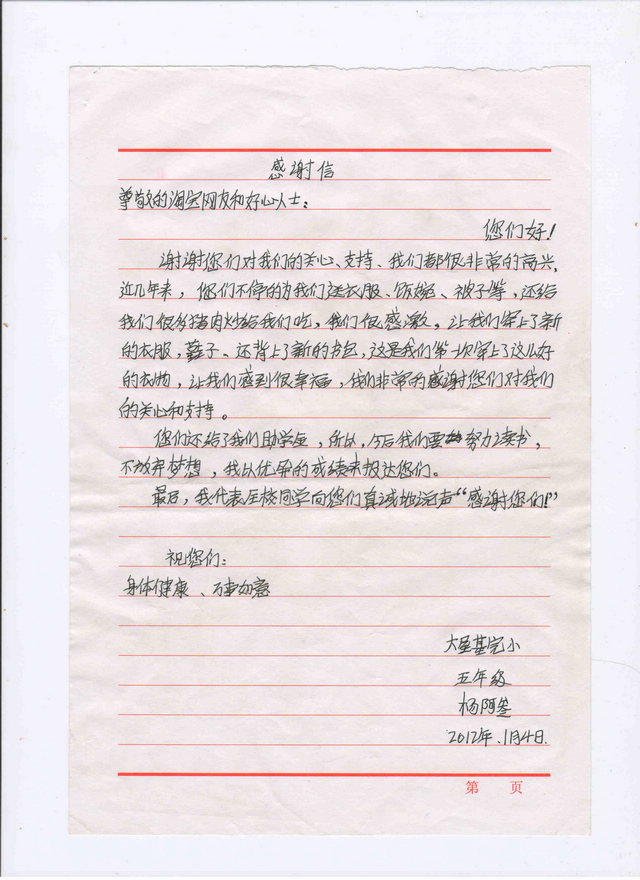 感谢信
尊敬的淘宝网友和好心人士：
您们好！
谢谢您们对我们的关心、支持、我们都很非常的高兴，
近几年来，您们不停的为我们送衣服、饭碗、被子等，还给
我们很多猪肉炒给我们吃，我们很感激，让我们穿上了新
的衣服，鞋子、还背上了新的书包，这是我们第一次穿上了这么好
的衣物，让我们感到很幸福，我们非常的感谢您们对我们
的关心和支持。
您们还给了我们助学金，所以，今后我们要努力读书，
不放弃梦想，我以优异的成绩来报达您们。
最后，我代表全校同学向您们真诚地说声“感谢您们！”
祝您们：
身体健康、万事如意
大 基完小
五年级
杨阿
2012年、1月4日.
第 页